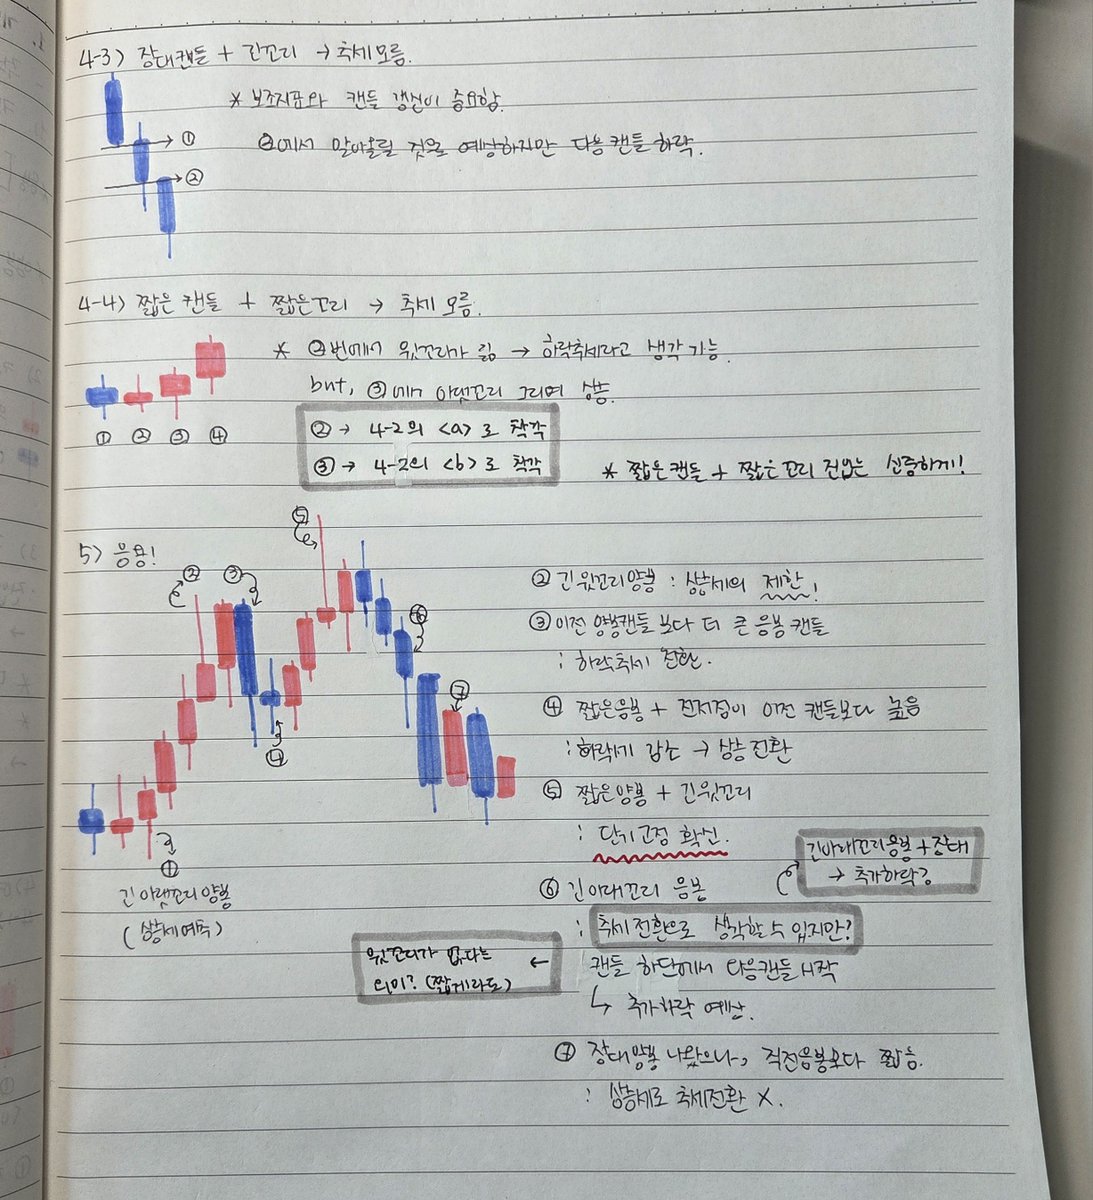 4-3) 장대캔들 + 긴꼬리 → 추세모름.
* 보조지표와 캔들 갱신이 중요함.
②에서 말아올릴 것으로 예상하지만 다음캔들 하락.
①
②
4-4) 짧은 캔들 + 짧은꼬리 → 추세 모름.
* ②번에서 윗꼬리가 김 → 하락추세라고 생각 가능.
but, ③에서 아랫꼬리 그리며 상승.
① ② ③ ④
② → 4-2의 <a>로 착각
③ → 4-2의 <b>로 착각
* 짧은캔들 + 짧은꼬리 진입은 신중하게!
5) 응용!
② ③ ⑤ ⑥ ⑦ ④
①
긴 아랫꼬리양봉
(상승세예측)
② 긴윗꼬리양봉 : 상승세의 제한!
③ 이전 양봉캔들 보다 더 큰 음봉 캔들
: 하락추세 전환.
④ 짧은음봉 + 전저점이 이전 캔들보다 높음
: 하락세 감소 → 상승 전환
⑤ 짧은양봉 + 긴윗꼬리
: 단기고점 확신.
긴아래꼬리음봉 + 장대
→ 추가하락?
⑥ 긴아래꼬리 음봉
: 추세전환으로 생각할 수 있지만?
윗꼬리가 없다는
의미? (짧게라도)
←
캔들 하단에서 다음캔들 시작
↳ 추가하락 예상.
⑦ 장대양봉 나왔으나, 직전음봉보다 짧음.
: 상승세로 추세전환 X.